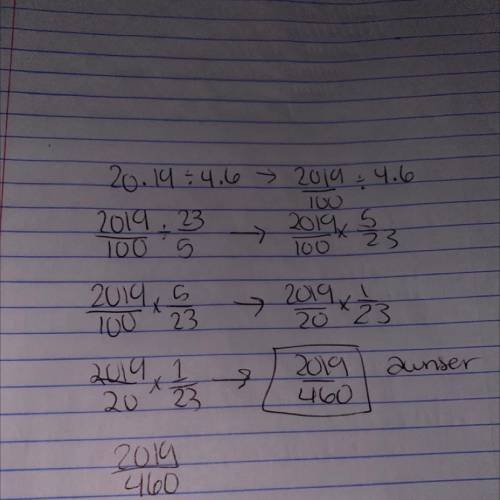 20.19 ÷ 4.6 → 2019/100 ÷ 4.6
2019/100 ÷ 23/5 → 2019/100 × 5/23
2019/100 × 5/23 → 2019/20 × 1/23
2019/20 × 1/23 → 2019/460 aunser
2019/460